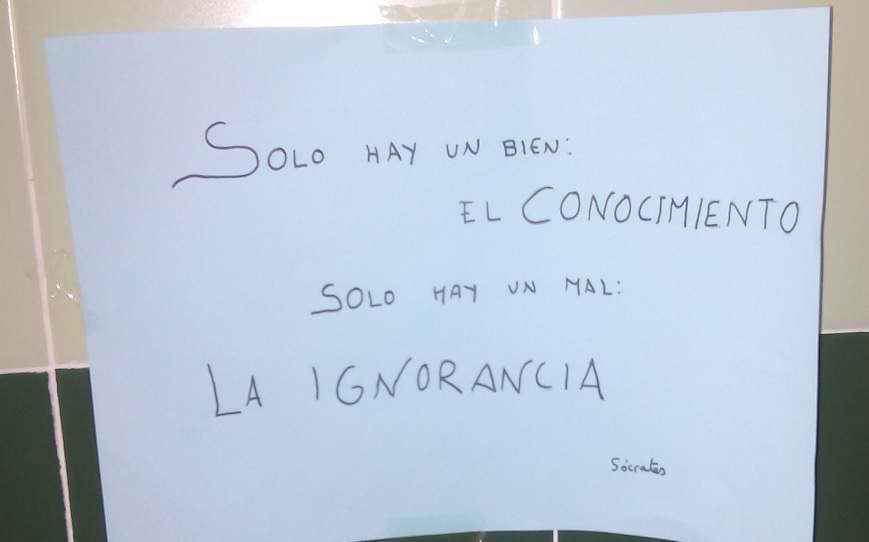 SOLO HAY UN BIEN:
EL CONOCIMIENTO
SOLO HAY UN MAL:
LA IGNORANCIA
Sócrates